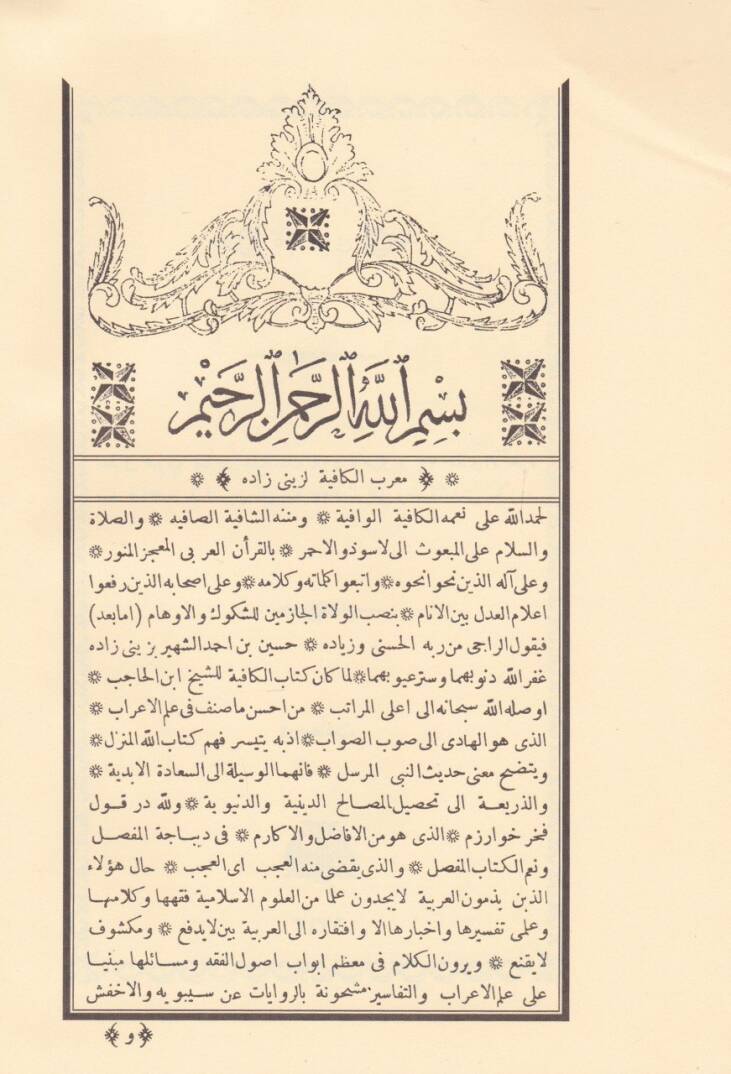 بسم الله الرحمن الرحيم
❊ ﴿ معرب الكافية لزينى زاده ﴾ ❊
لحمدالله على نعمه الكافية الوافية ❊ ومننه الشافية الصافيه ❊ والصلاة
والسلام على المبعوث الى لاسودوالاحمر ❊ بالقرأن العربى المعجز المنور ❊
وعلى آله الذين نحوا نحوه ❊ واتبعوا كلماته وكلامه ❊ وعلى اصحابه الذين رفعوا
اعلام العدل بين الانام ❊ بنصب الولاة الجازمين للشكوك والاوهام (امابعد)
فيقول الراجى من ربه الحسنى وزياده ❊ حسين بن احمد الشهير بزينى زاده
غفرالله دنوبهما وسترعيوبهما ❊ لما كان كتاب الكافية للشيخ ابن الحاجب ❊
اوصله الله سبحانه الى اعلى المراتب ❊ من احسن ماصنف فى علم الاعراب ❊
الذى هو الهادى الى صوب الصواب ❊ اذبه يتيسر فهم كتاب الله المنزل ❊
ويتضح معنى حديث النبى المرسل ❊ فانهما الوسيلة الى السعادة الابدية ❊
والذريعة الى تحصيل المصالح الدينية والدنيوية ❊ ولله در قول
فخر خوارزم ❊ الذى هو من الافاضل والاكارم ❊ فى ديباجة المفصل
ونعم الكتاب المفصل ❊ والذى يقضى منه العجب اى العجب ❊ حال هؤلاء
الذين يذمون العربية لايجدون علما من العلوم الاسلامية فقهها وكلامها
وعلمى تفسيرها واخبارها الا وافتقاره الى العربية بين لايدفع ❊ ومكشوف
لايقنع ❊ ويرون الكلام فى معظم ابواب اصول الفقه ومسائلها مبنيا
على علم الاعراب والتفاسير مشحونة بالروايات عن سيبويه والاخفش
﴿ و ﴾